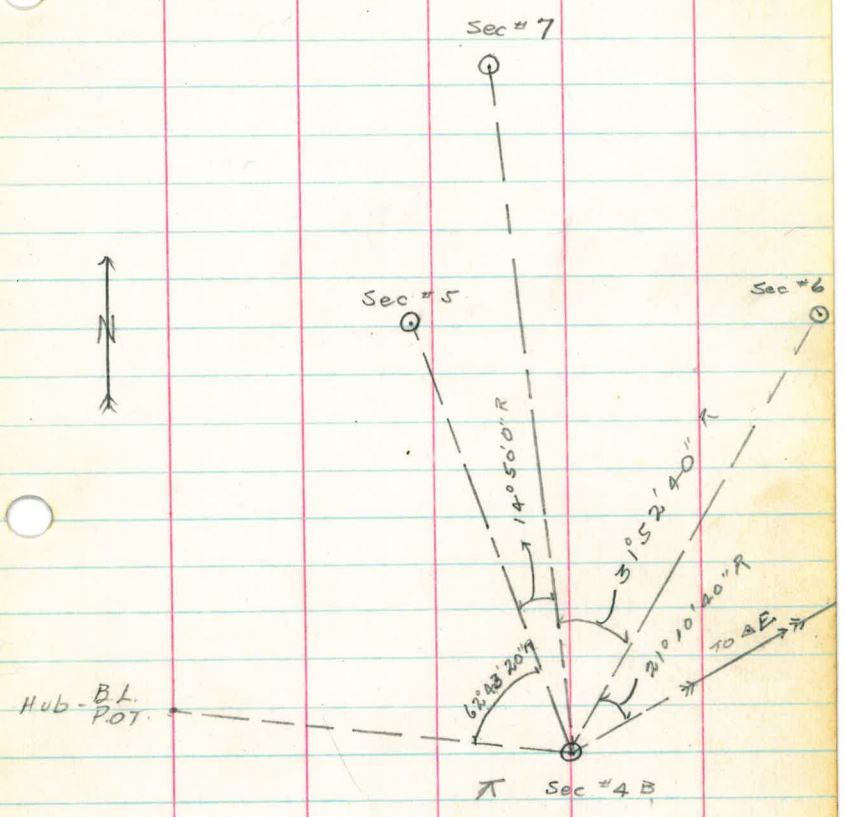 Sec # 7
Sec # 5
Sec #6
N
14° 50' 0" R
31° 52' 40" R
21° 10' 40" R
TO ▲E.
62° 43' 20" R
Hub - B.L.
P.O.T.
⊼
Sec #4 B